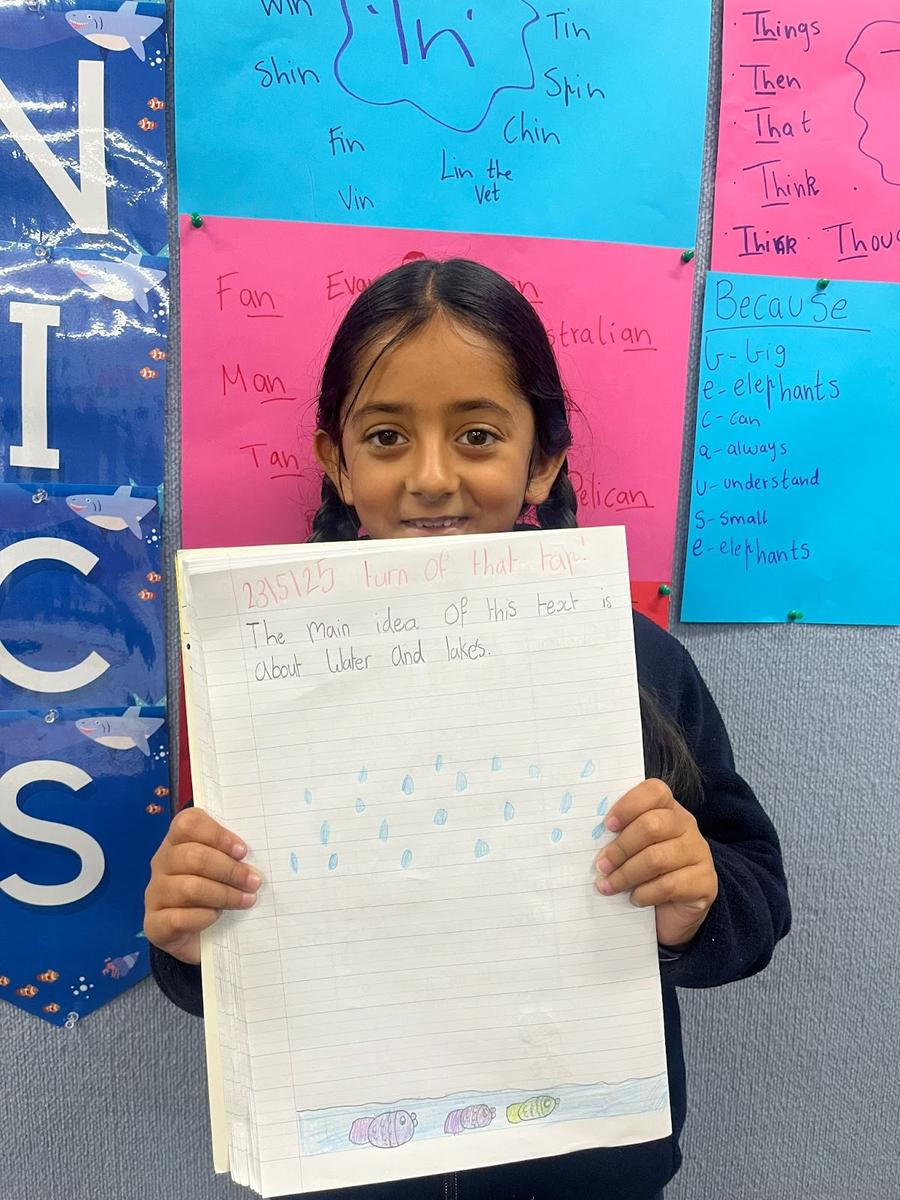 N
I
C
S
Win
in
Tin
Shin
Spin
Fin
Chin
Lin the
Vet
Vin
Things
Then
That
Think
Think
Fan
Man
Tan
stralian
Pelican
Because
b-big
e-elephants
c-can
a-always
u-understand
s-small
e-elephants
23\5\25 turn of that tap!
The main idea of this text is
about water and lakes.